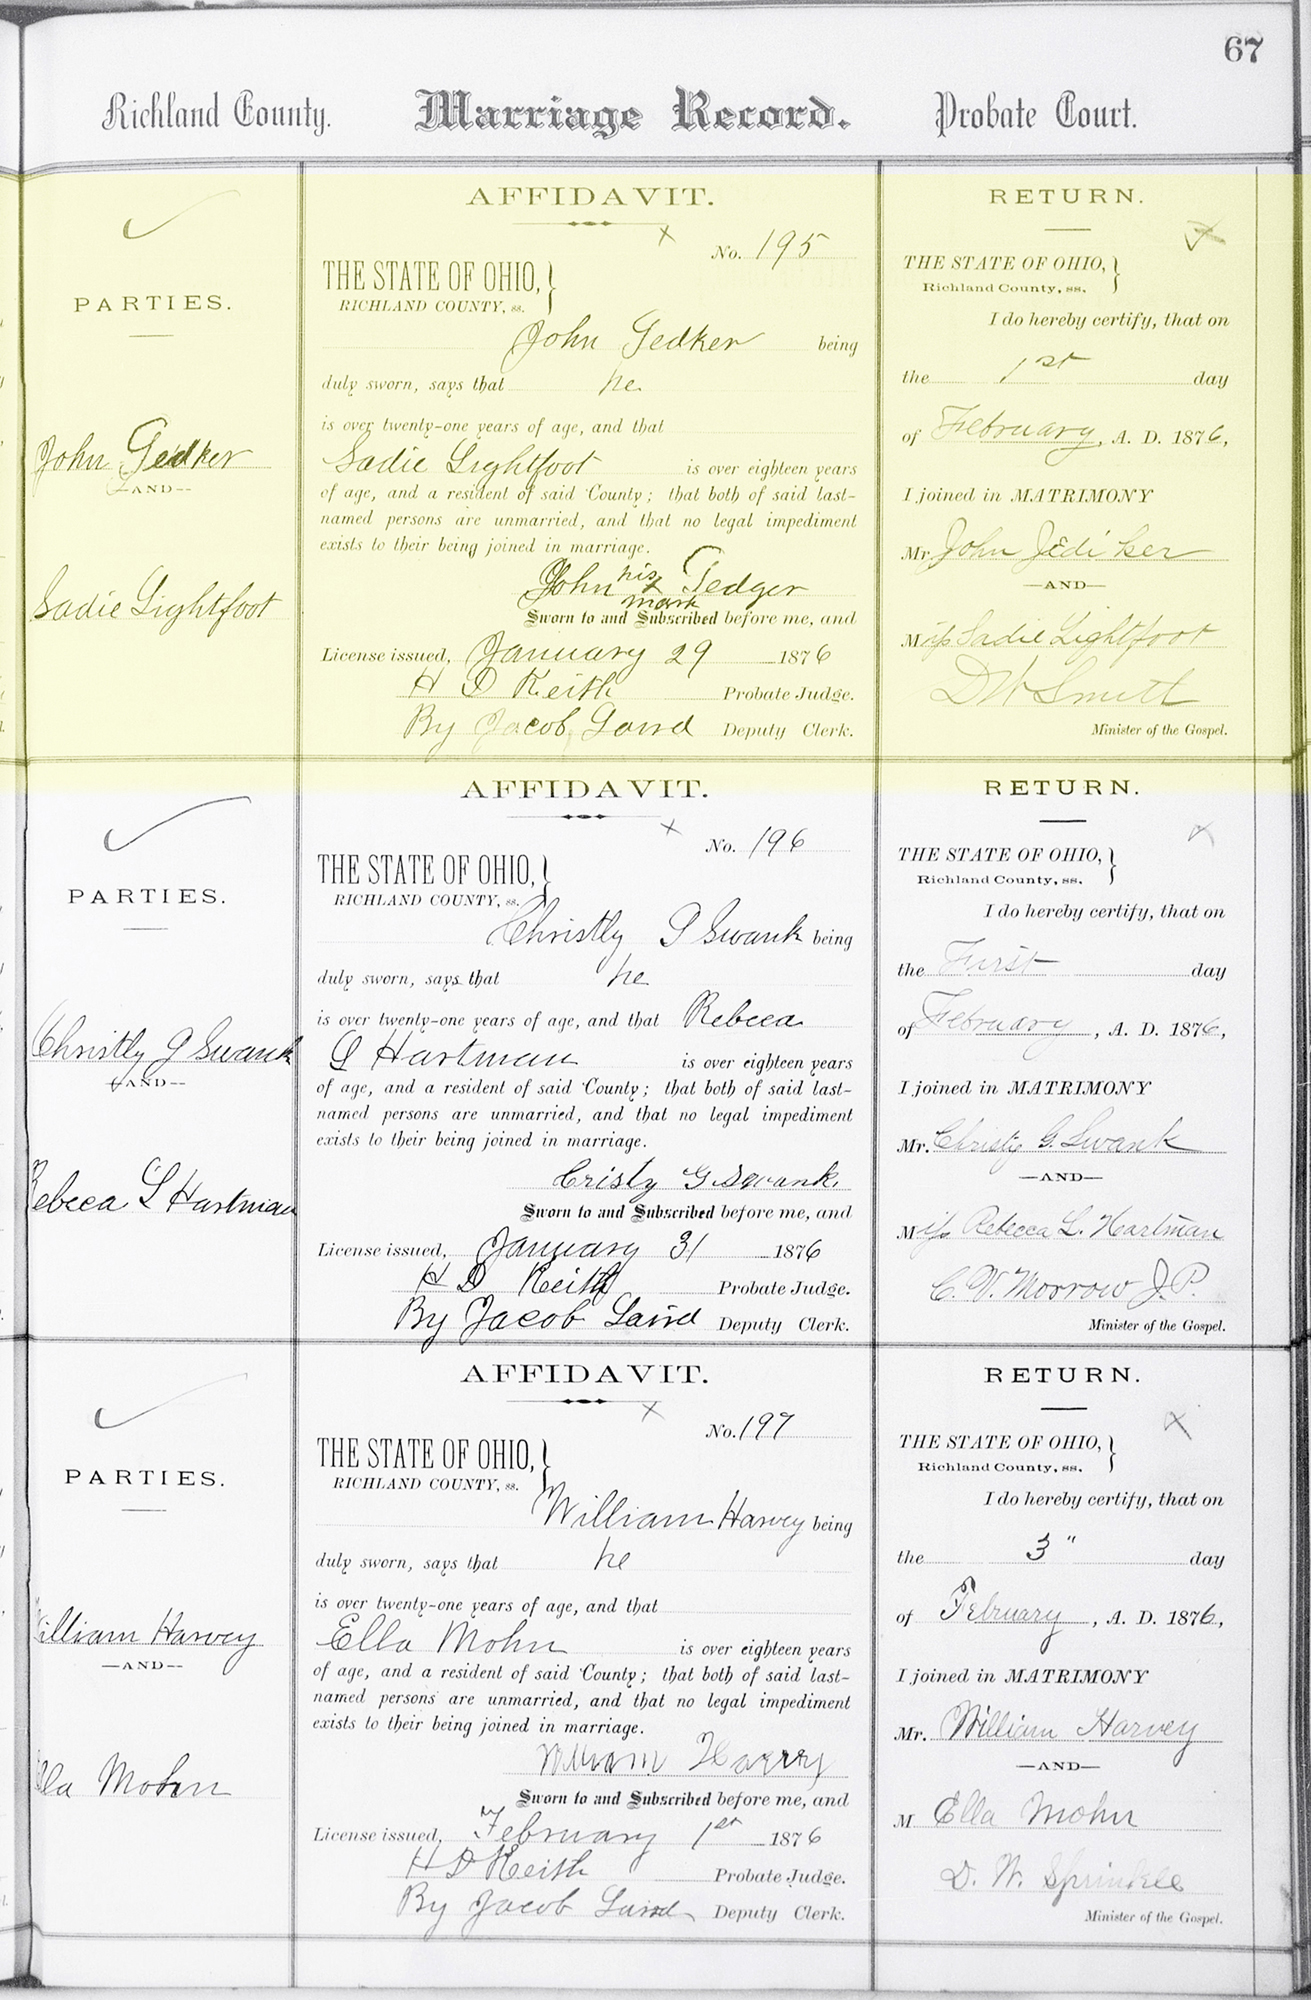 67
Richland County. Marriage Record. Probate Court.
PARTIES.
John Gedker
—AND—
Sadie Lightfoot
AFFIDAVIT.
No. 195
THE STATE OF OHIO,
RICHLAND COUNTY, ss.
John Gedker being
duly sworn, says that he
is over twenty-one years of age, and that
Sadie Lightfoot is over eighteen years
of age, and a resident of said County; that both of said last-
named persons are unmarried, and that no legal impediment
exists to their being joined in marriage.
his
John x Gedger
mark
Sworn to and Subscribed before me, and
License issued, January 29 1876
H D Keith Probate Judge.
By Jacob Laird Deputy Clerk.
RETURN.
THE STATE OF OHIO,
Richland County, ss.
I do hereby certify, that on
the 1st day
of February, A. D. 1876,
I joined in MATRIMONY
Mr John Jediker
—AND—
Miss Sadie Lightfoot
D W Smith
Minister of the Gospel.
PARTIES.
Christly G Swank
—AND—
Rebecca L Hartman
AFFIDAVIT.
No. 196
THE STATE OF OHIO,
RICHLAND COUNTY, ss.
Christly G Swank being
duly sworn, says that he
is over twenty-one years of age, and that Rebecca
L Hartman is over eighteen years
of age, and a resident of said County; that both of said last-
named persons are unmarried, and that no legal impediment
exists to their being joined in marriage.
Cristy G Swank
Sworn to and Subscribed before me, and
License issued, January 31 1876
H D Keith Probate Judge.
By Jacob Laird Deputy Clerk.
RETURN.
THE STATE OF OHIO,
Richland County, ss.
I do hereby certify, that on
the First day
of February, A. D. 1876,
I joined in MATRIMONY
Mr. Christy G. Swank
—AND—
Miss Rebecca L. Hartman
C. V. Morrow J. P.
Minister of the Gospel.
PARTIES.
William Harvey
—AND—
Ella Mohn
AFFIDAVIT.
No. 197
THE STATE OF OHIO,
RICHLAND COUNTY, ss.
William Harvey being
duly sworn, says that he
is over twenty-one years of age, and that
Ella Mohn is over eighteen years
of age, and a resident of said County; that both of said last-
named persons are unmarried, and that no legal impediment
exists to their being joined in marriage.
William Harvey
Sworn to and Subscribed before me, and
License issued, February 1st 1876
H D Keith Probate Judge.
By Jacob Laird Deputy Clerk.
RETURN.
THE STATE OF OHIO,
Richland County, ss.
I do hereby certify, that on
the 3" day
of February, A. D. 1876,
I joined in MATRIMONY
Mr. William Harvey
—AND—
M Ella Mohn
D. W. Sprinkle
Minister of the Gospel.